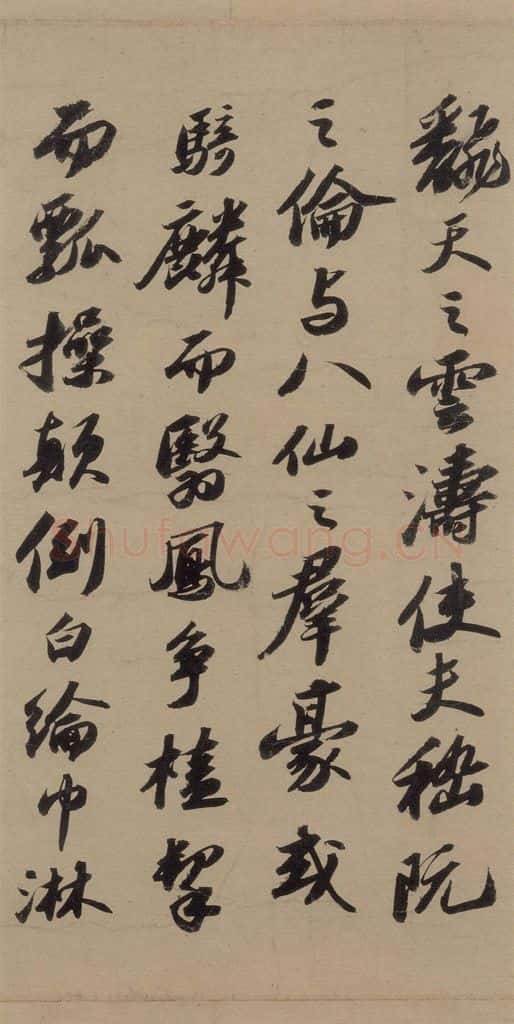 飜天之雲濤使夫嵇阮
之倫与八仙之羣豪或
騎麟而翳鳳争榼挈
而瓢操顛倒白綸巾淋
Shufawang.CN